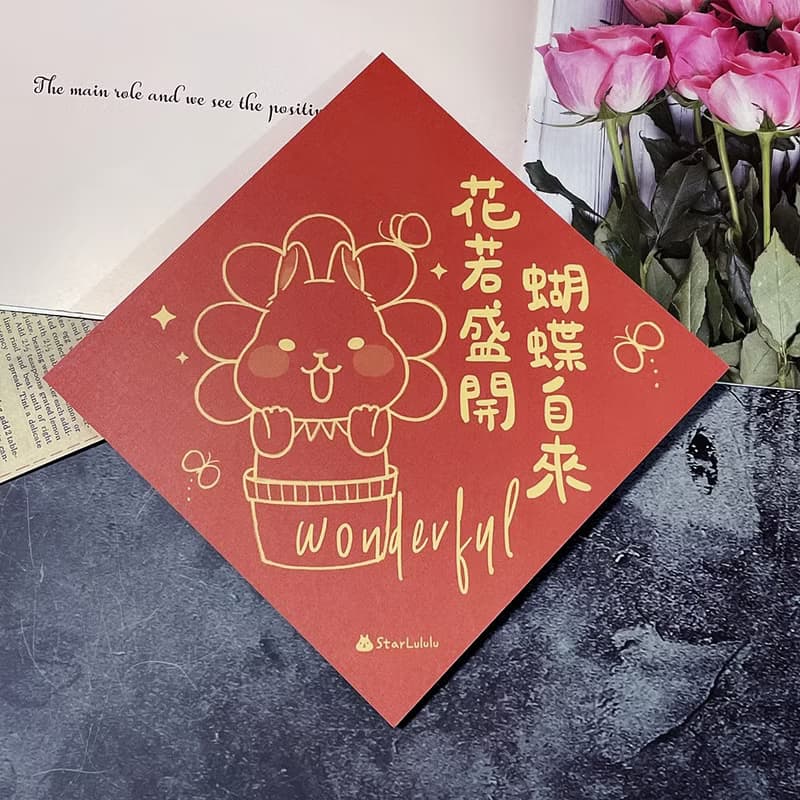 The main role and we see the positiv
花若盛開
蝴蝶自來
wonderful
StarLululu